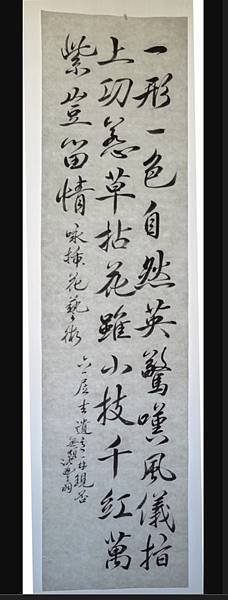 一形一色自然英驚嘆風儀指
上功惹草拈花雖小技千紅萬
紫豈留情
咏插花藝術
六一居士